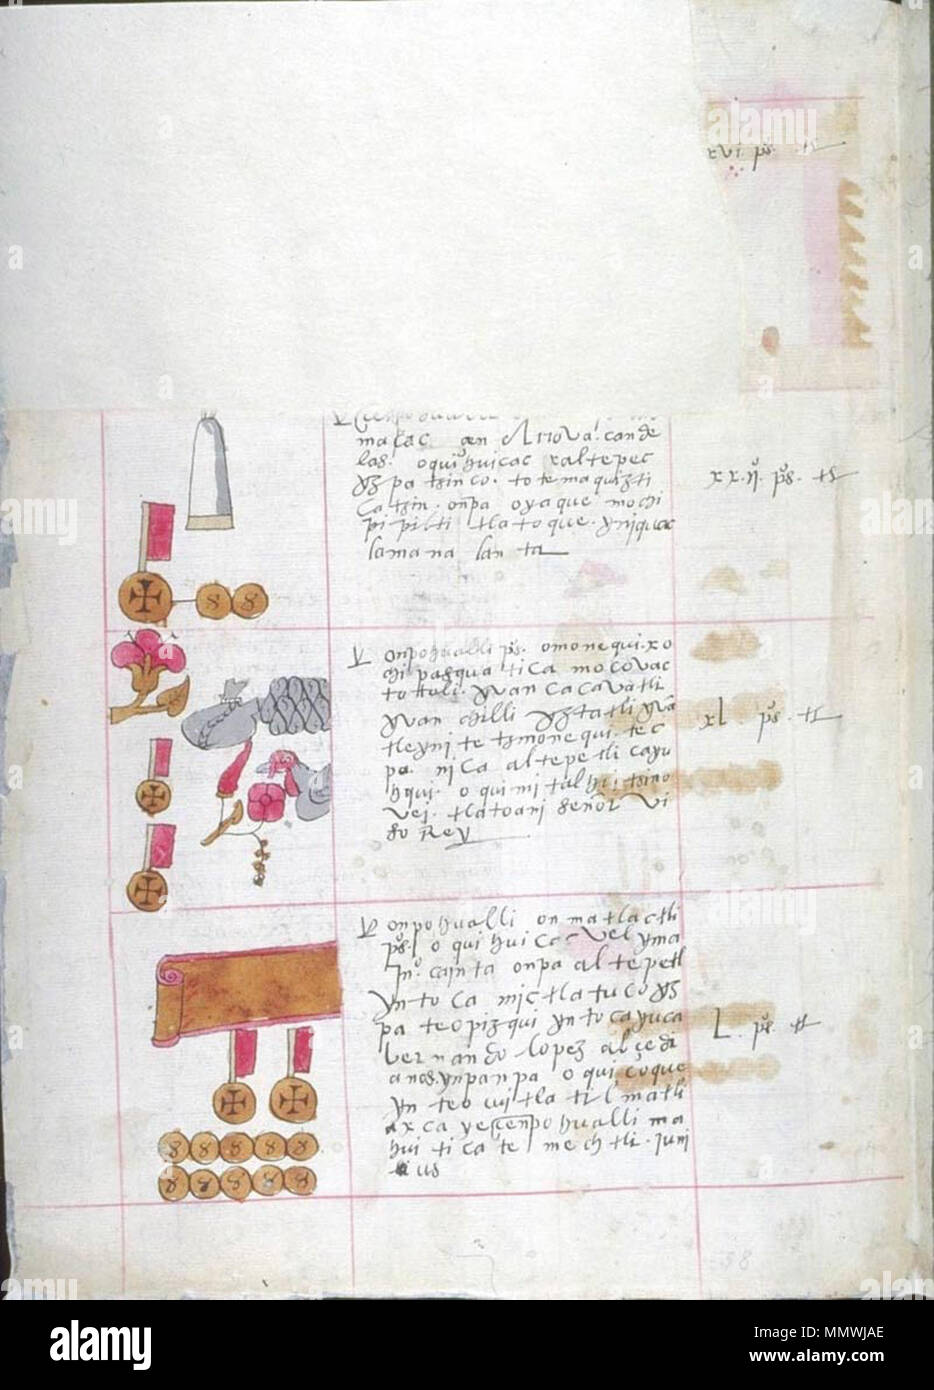 xvi. ps. ts
maçac. can de
las. oquihuicac xaltepec
totemaquizti
catzin. onpa oyaque mochi
pipilti tlatoque. yniquac
lamana lan ta
xx.ij. ps. ts
onpohualli ps. omonequi. xo
chipasqua tica mocovac
totoli. yvan cacavatli
yvan chilli yztatli yva
tleyni tetzmonequi. tec
pa. nica altepetli cayu
hqui. oquimitalhui. tzino
vei. tlatoani señor vi
so Rey
xl. ps. ts
onpohualli onmatlactli
ps. oquihuicac velyma
Juº. cainta onpa altepetl
yntoca mictlatuco yz
pa teopizqui yntocayuca
bernando lopez alçedi
anos. ynpanpa oquiçoque
yn teocuitlatilmatli
axca yecenpohualli ma
huitica te mechtli. Juni
ius
L. ps. ts
38
alamy
Image ID: MMWJAE
www.alamy.com